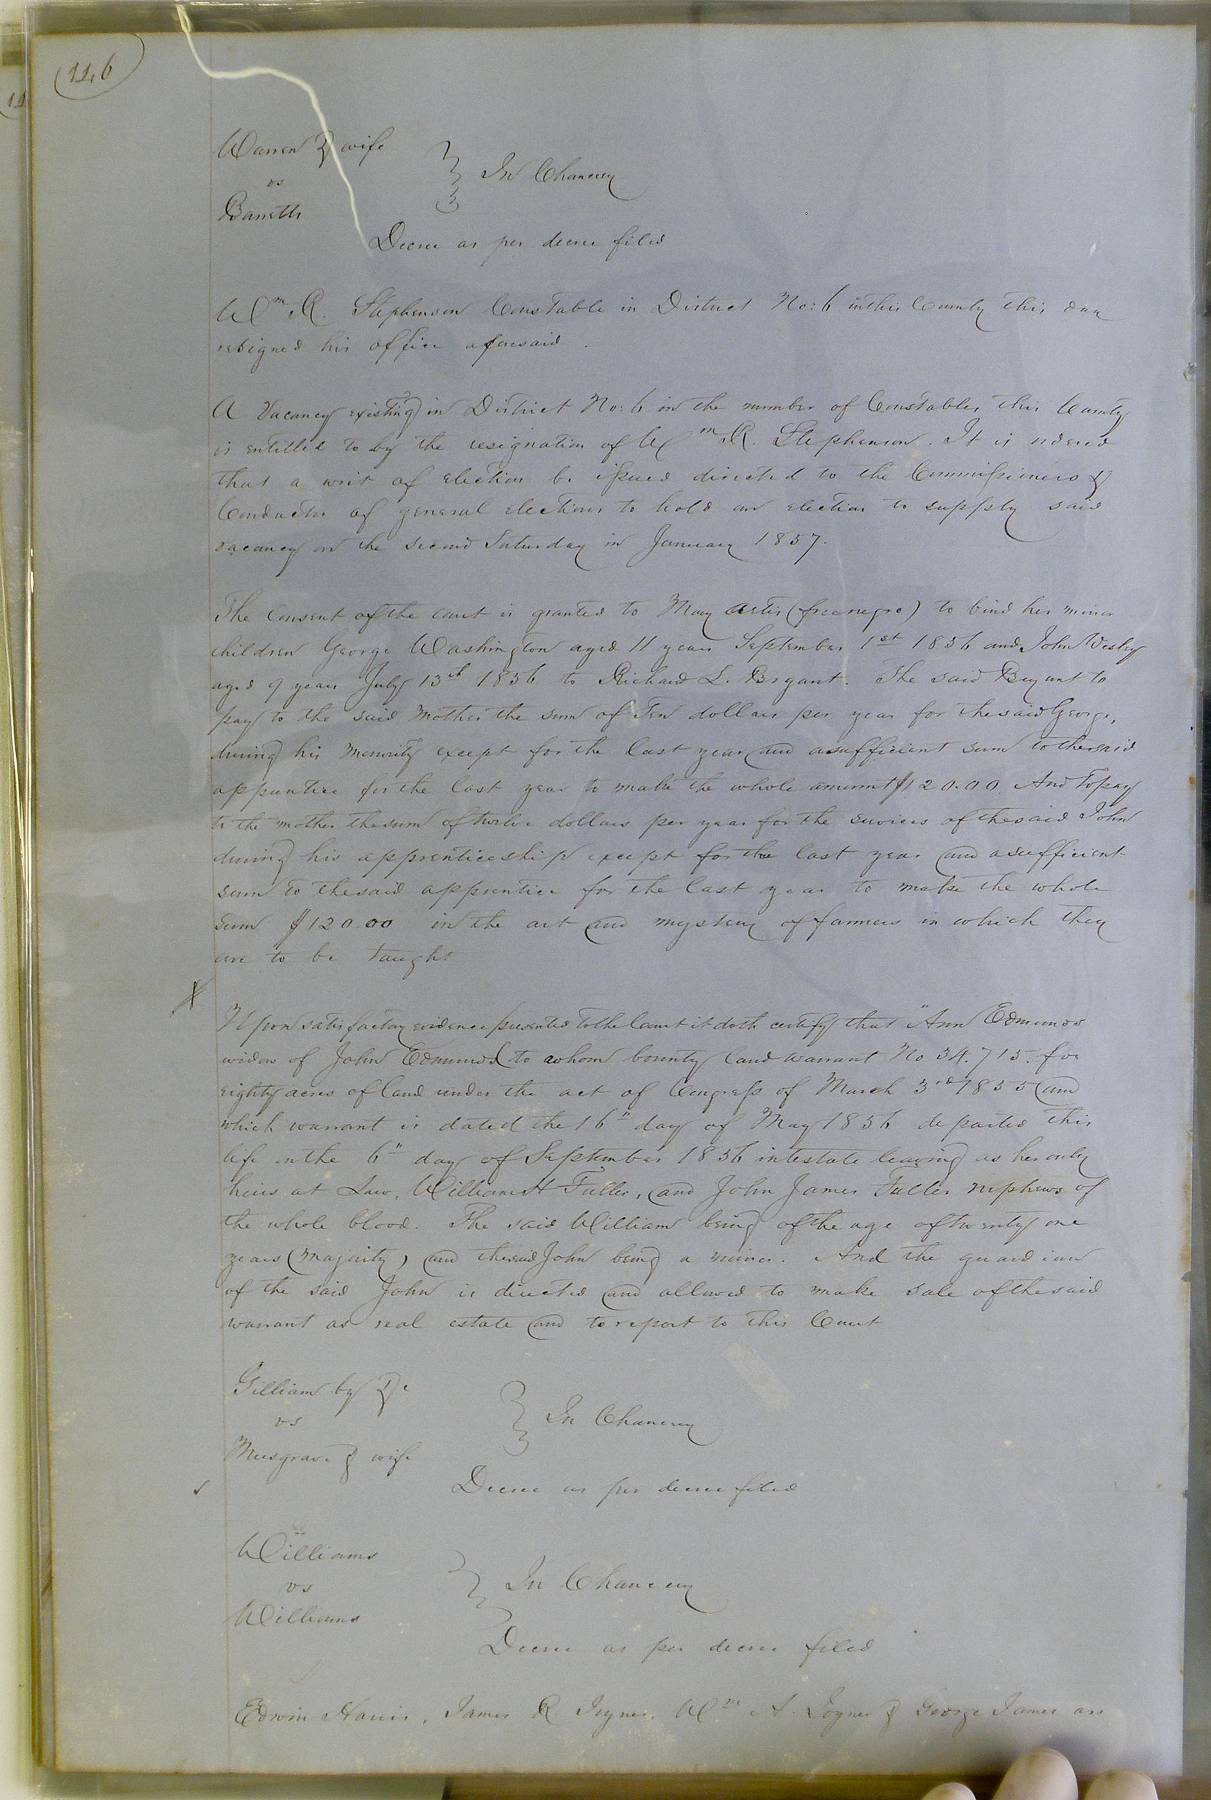 116
Warren & wife
vs
Barrett
In Chancery
Decree as per decree filed
Wm R. Stephenson Constable in District No: 6 in this County this day
resigned his office aforesaid.
A Vacancy existing in District No: 6 in the number of Constables this County
is entitled to by the resignation of Wm R. Stephenson. It is ordered
that a writ of election be issued directed to the Commissioners &
Conductor of general elections to hold an election to supply said
vacancy on the second Saturday in January 1857.
The consent of the court is granted to Mary Artis (free negro) to bind her minor
children George Washington aged 11 years September 1st 1856 and John Wesley
aged 9 years July 13th 1856 to Richard L. Bryant. The said Bryant to
pay to the said mother the sum of Ten dollars per year for the said George,
during his minority except for the last year and a sufficient sum to the said
apprentice for the last year to make the whole amount $120.00. And to pay
to the mother the sum of twelve dollars per year for the services of the said John
during his apprenticeship except for the last year and a sufficient
sum to the said apprentice for the last year to make the whole
sum $120.00 in the art and mystery of farmers in which they
are to be taught
X
Upon satisfactory evidence presented to the Court it doth certify that "Ann Edmunds
widow of John Edmunds to whom bounty land warrant No 34.715. for
eighty acres of land under the act of Congress of March 3rd 1855 and
which warrant is dated the 16" day of May 1856 departed this
life on the 6" day of September 1856 intestate leaving as her only
heirs at Law, William H Fuller, and John James Fuller nephews of
the whole blood. The said William being of the age of twenty one
years (majority) and the said John being a minor. And the guardian
of the said John is directed and allowed to make sale of the said
warrant as real estate and to report to this Court
Gilliam by &c
vs
Musgrave & wife
In Chancery
Decree as per decree filed
Williams
vs
Williams
In Chancery
Decree as per decree filed
Edwin Harris, James R Joyner, Wm A. Joyner & George James are